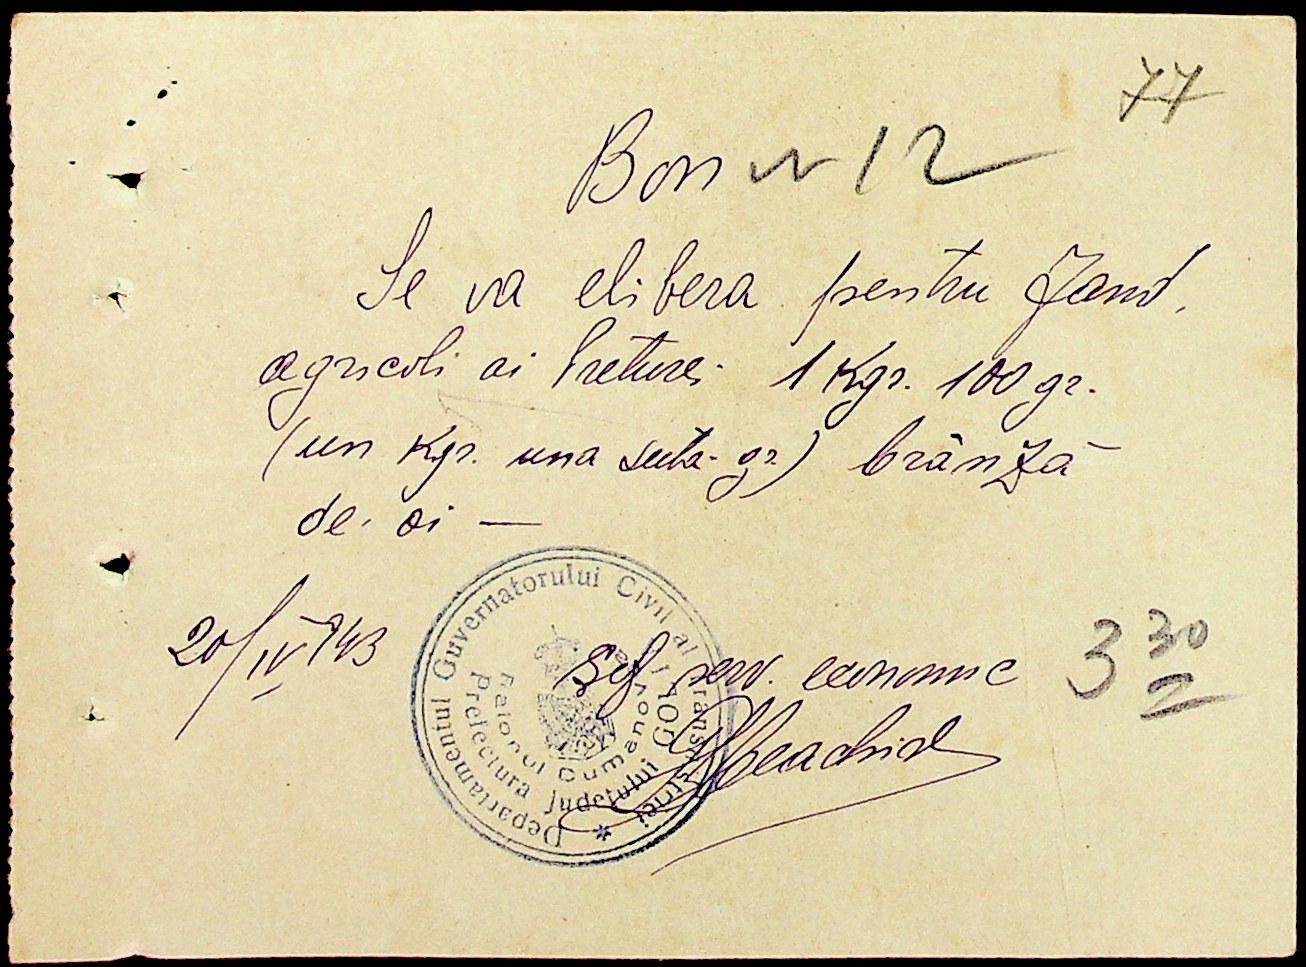 77
Bon nr 12
Se va elibera pentru Jand.
agricoli ai Preturei 1 Kgr. 100 gr.
(un Kgr. una suta gr.) brânză
de oi —
20/IV 943
Șef serv. economic
3 30
Departamentul Guvernatorului Civil al Transnistriei
Prefectura Județului Golta
Raionul Dumanovca